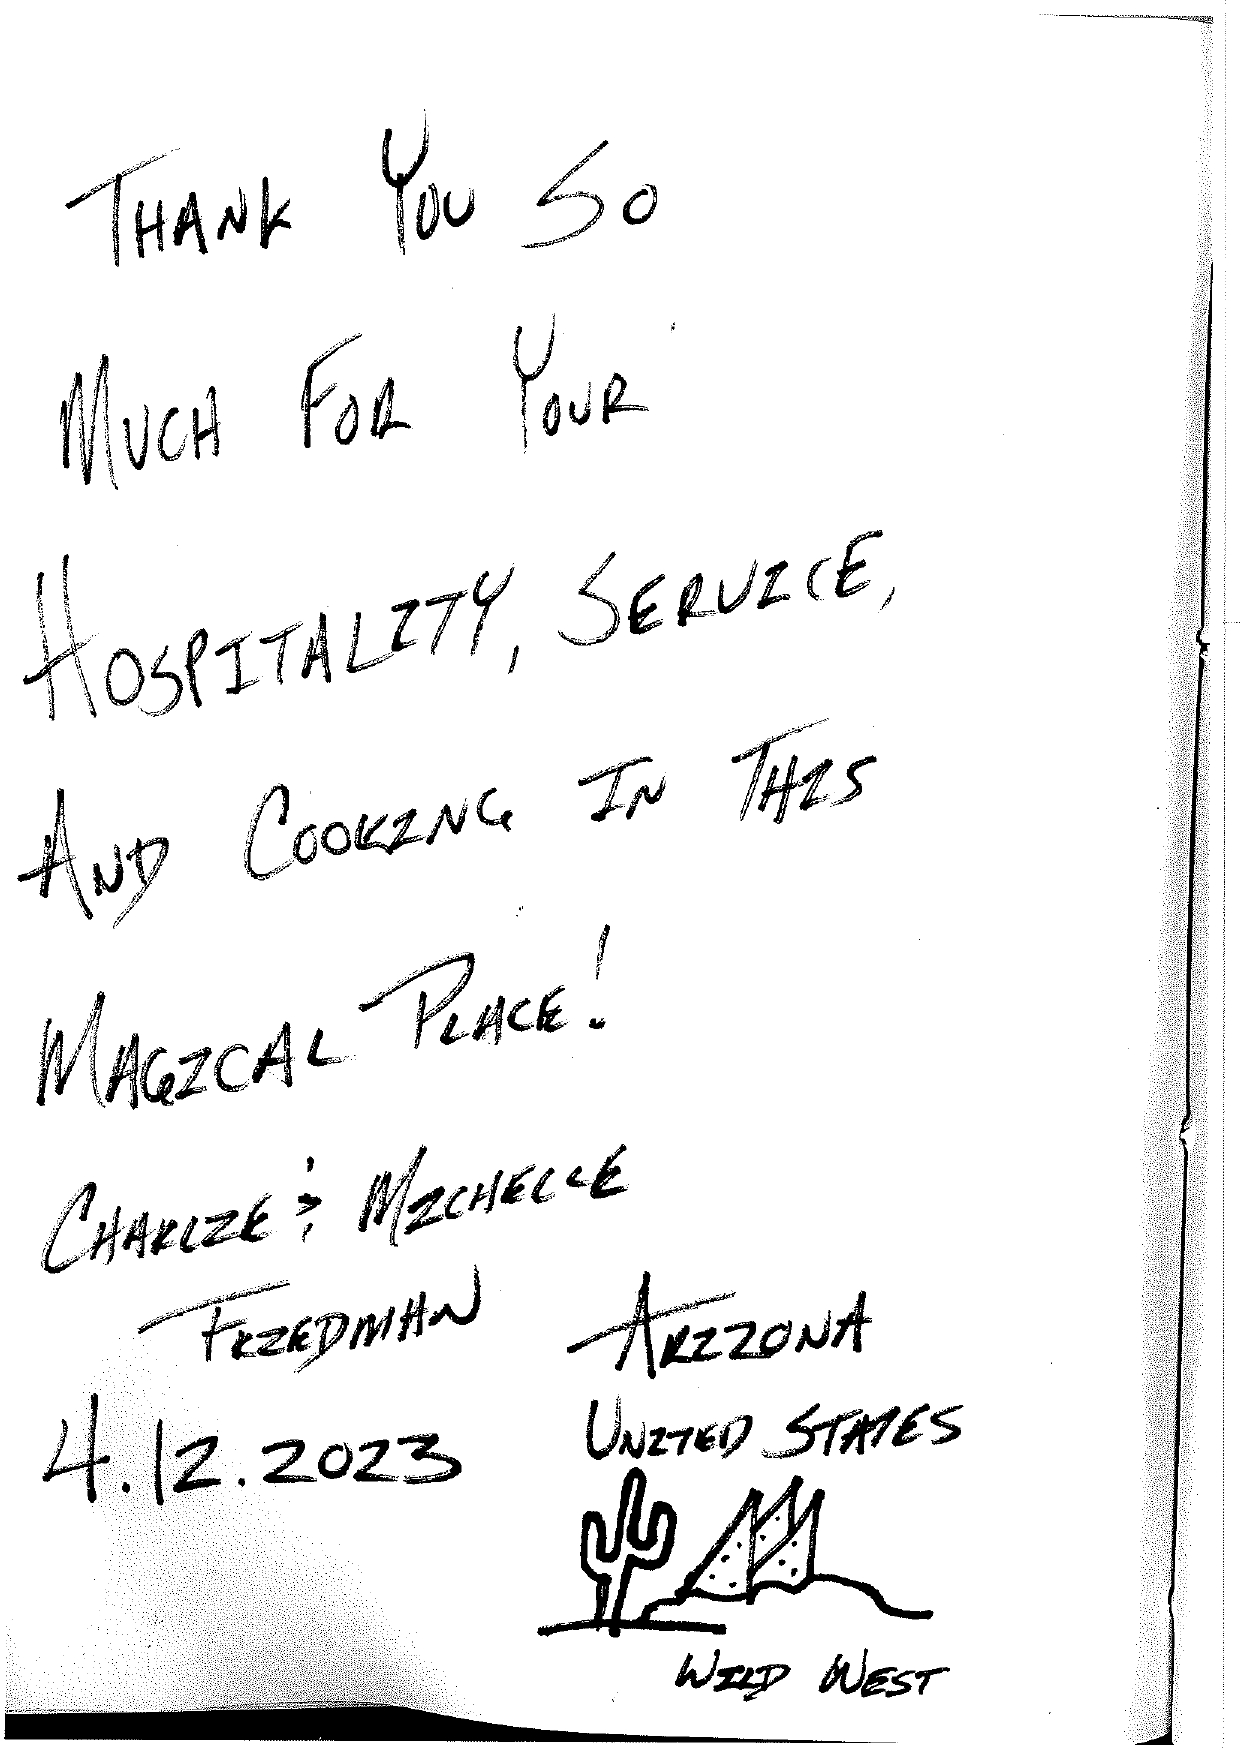 THANK YOU SO
MUCH FOR YOUR
HOSPITALITY, SERVICE,
AND COOKING IN THIS
MAGICAL PLACE!
CHARLIE & MICHELLE
FRIEDMAN
ARIZONA
4.12.2023
UNITED STATES
WILD WEST